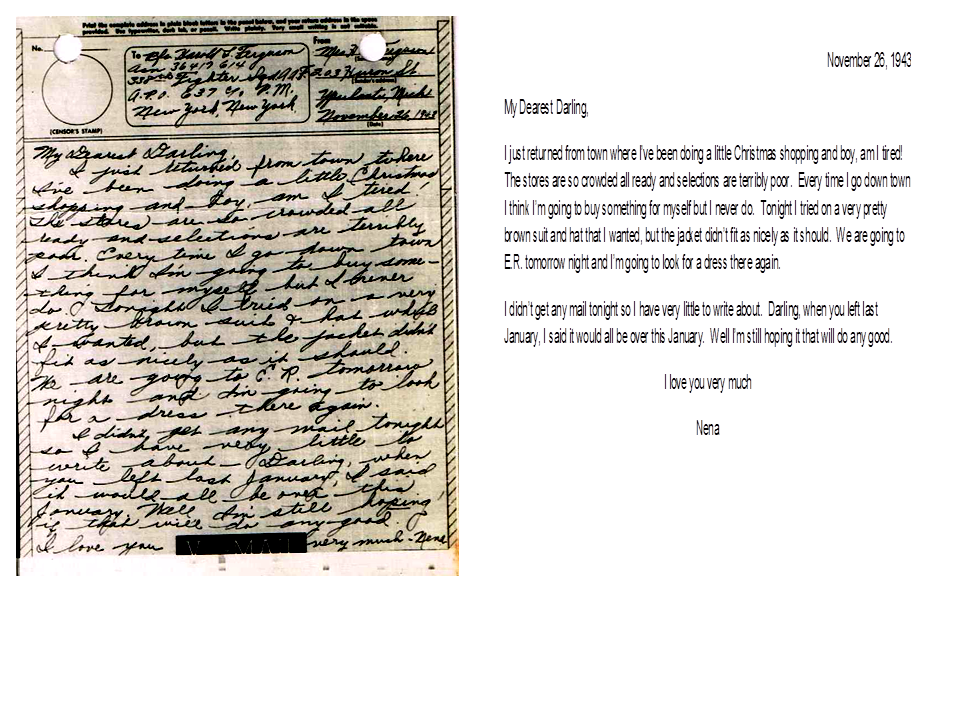 Print the complete address in plain block letters in the panel below, and your return address in the space
provided. Use typewriter, dark ink, or pencil. Write plainly. Very small writing is not suitable.
No.
(CENSOR'S STAMP)
To Pfc Harold L. Ferguson
Asn 36417614
338th Fighter Sqd AAF
A.P.O. 637 c/o P.M.
New York, New York.
From
Mrs. Ferguson
203 Huron St
(Sender's address)
Mich
November 26, 1943
(Date)
My Dearest Darling,
I just returned from town where
I've been doing a little Christmas
shopping and boy, am I tired!
The stores are so crowded all
ready and selections are terribly
poor. Every time I go down town
I think I'm going to buy some-
thing for myself but I never
do. Tonight I tried on a very
pretty brown suit & hat which
I wanted, but the jacket didn't
fit as nicely as it should.
We are going to E. R. tomorrow
night and I'm going to look
for a dress there again.
I didn't get any mail tonight
so I have very little to
write about - Darling, when
you left last January, I said
it would all be over this
January. Well I'm still hoping
if that will do any good.
I love you very much - Nena
V-MAIL
November 26, 1943
My Dearest Darling,
I just returned from town where I've been doing a little Christmas shopping and boy, am I tired!
The stores are so crowded all ready and selections are terribly poor. Every time I go down town
I think I'm going to buy something for myself but I never do. Tonight I tried on a very pretty
brown suit and hat that I wanted, but the jacket didn't fit as nicely as it should. We are going to
E.R. tomorrow night and I'm going to look for a dress there again.
I didn't get any mail tonight so I have very little to write about. Darling, when you left last
January, I said it would all be over this January. Well I'm still hoping it that will do any good.
I love you very much
Nena